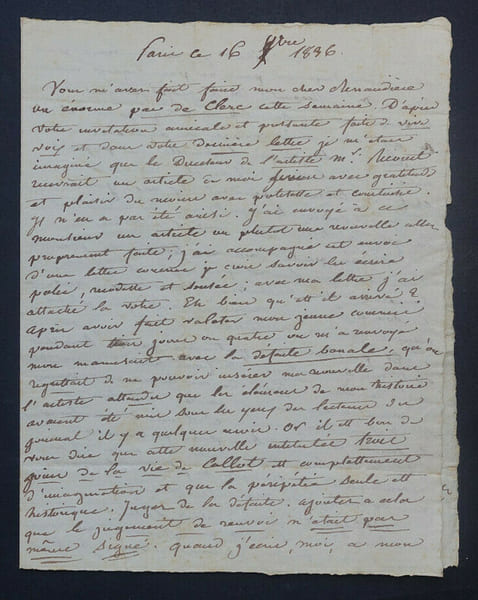 Paris ce 16 9bre 1836.
Vous m'avez fait faire mon cher Renaudière
un énorme pas de Clerc cette semaine. D'après
votre invitation amicale et pressante faite de vive
voix et dans votre dernière lettre je m'étais
imaginé que le Directeur de l'artiste Mr. Ricourt
recevrait un article de moi sinon avec gratitude
et plaisir du moins avec politesse et courtoisie.
Il n'en a pas été ainsi. J'ai envoyé à ce
monsieur un article ou plutôt une nouvelle assez
proprement faite, j'ai accompagné cet envoi
d'une lettre comme je crois savoir les écrire
polie, modeste et sensée; avec ma lettre j'ai
attaché la votre. Eh bien qu'est il arrivé ?
Après avoir fait valeter mon jeune commis
pendant trois jours ou quatre on m'a renvoyé
mon manuscrit avec la défaite banale, qu'on
regrettait de ne pouvoir insérer ma nouvelle dans
l'artiste attendu que les élémens de mon histoire
avaient été mis sous les yeux des lecteurs du
journal il y a quelques mois. Or il est bon de
vous dire que cette nouvelle intitulée trois
jours de la vie de Callot est complettement
d'imagination et que la péripétie seule est
historique. Jugez de la défaite. Ajoutez à cela
que le jugement de renvoi n'était pas
même signé. Quand j'écris, moi, à mon